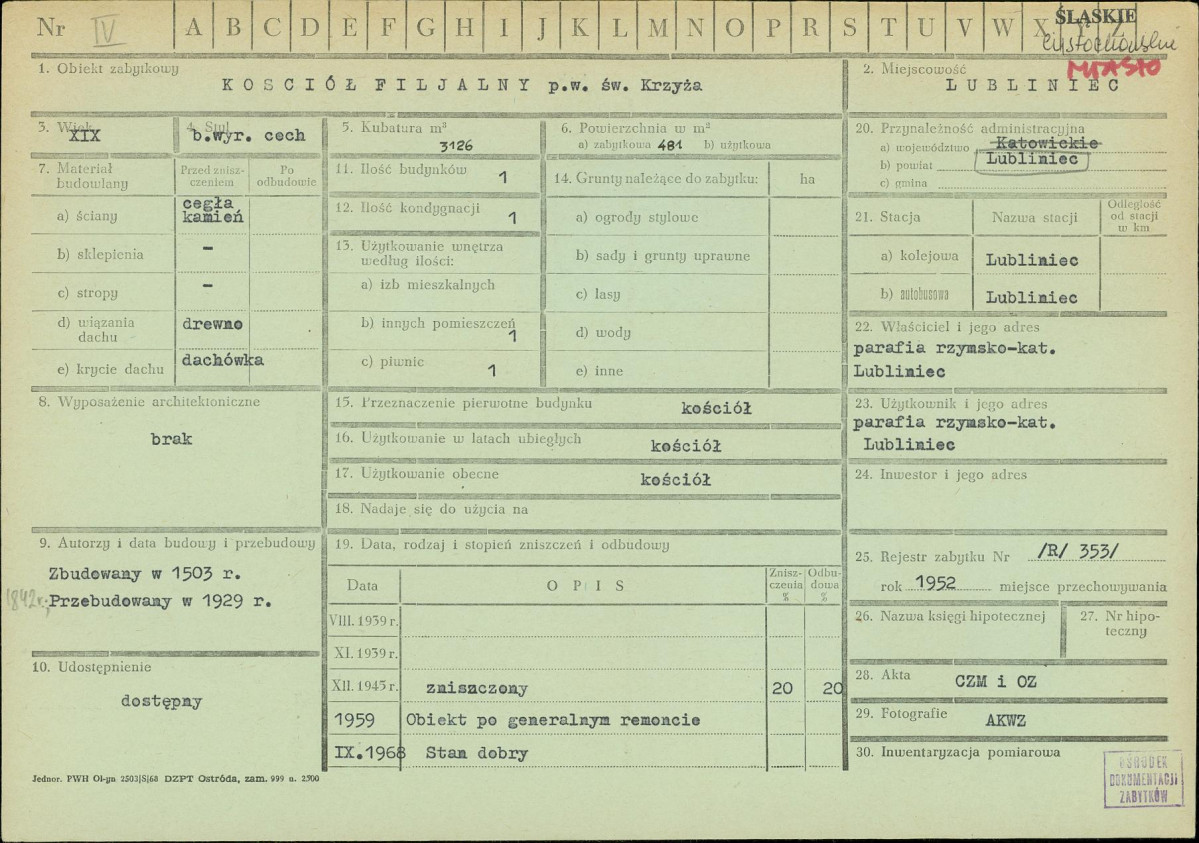 Nr IV A B C D E F G H I J K L M N O P R S T U V W X Y Z
ŚLĄSKIE
MIASTO
1. Obiekt zabytkowy
KOSCIÓŁ FILJALNY p.w. św. Krzyża
2. Miejscowość
LUBLINIEC
3. Wiek
XIX
4. Styl
b.wyr. cech
5. Kubatura m³
3126
6. Powierzchnia w m²
a) zabytkowa 481 b) użytkowa
7. Materiał budowlany
Przed zniszczeniem
Po odbudowie
a) ściany cegła kamień
b) sklepienia –
c) stropy –
d) wiązania dachu drewno
e) krycie dachu dachówka
8. Wyposażenie architektoniczne
brak
9. Autorzy i data budowy i przebudowy
Zbudowany w 1503 r.
1842r.; Przebudowany w 1929 r.
10. Udostępnienie
dostępny
11. Ilość budynków 1
12. Ilość kondygnacji 1
13. Użytkowanie wnętrza według ilości:
a) izb mieszkalnych
b) innych pomieszczeń 1
c) piwnic 1
14. Grunty należące do zabytku: ha
a) ogrody stylowe
b) sady i grunty uprawne
c) lasy
d) wody
e) inne
15. Przeznaczenie pierwotne budynku kościół
16. Użytkowanie w latach ubiegłych kościół
17. Użytkowanie obecne kościół
18. Nadaje się do użycia na
19. Data, rodzaj i stopień zniszczeń i odbudowy
Data OPIS Zniszczenia % Odbudowa %
VIII. 1939 r.
XI. 1939 r.
XII. 1945 r. zniszczony 20 20
1959 Obiekt po generalnym remoncie
IX.1968 Stan dobry
20. Przynależność administracyjna
a) województwo Katowickie
b) powiat Lubliniec
c) gmina
21. Stacja Nazwa stacji Odległość od stacji w km
a) kolejowa Lubliniec
b) autobusowa Lubliniec
22. Właściciel i jego adres
parafia rzymsko-kat.
Lubliniec
23. Użytkownik i jego adres
parafia rzymsko-kat.
Lubliniec
24. Inwestor i jego adres
25. Rejestr zabytku Nr /R/ 353/
rok 1952 miejsce przechowywania
26. Nazwa księgi hipotecznej
27. Nr hipoteczny
28. Akta CZM i OZ
29. Fotografie AKWZ
30. Inwentaryzacja pomiarowa
OŚRODEK
DOKUMENTACJI
ZABYTKÓW
Jednor. PWH Ol-yn 2503|S|68 DZPT Ostróda, zam. 999 n. 2500